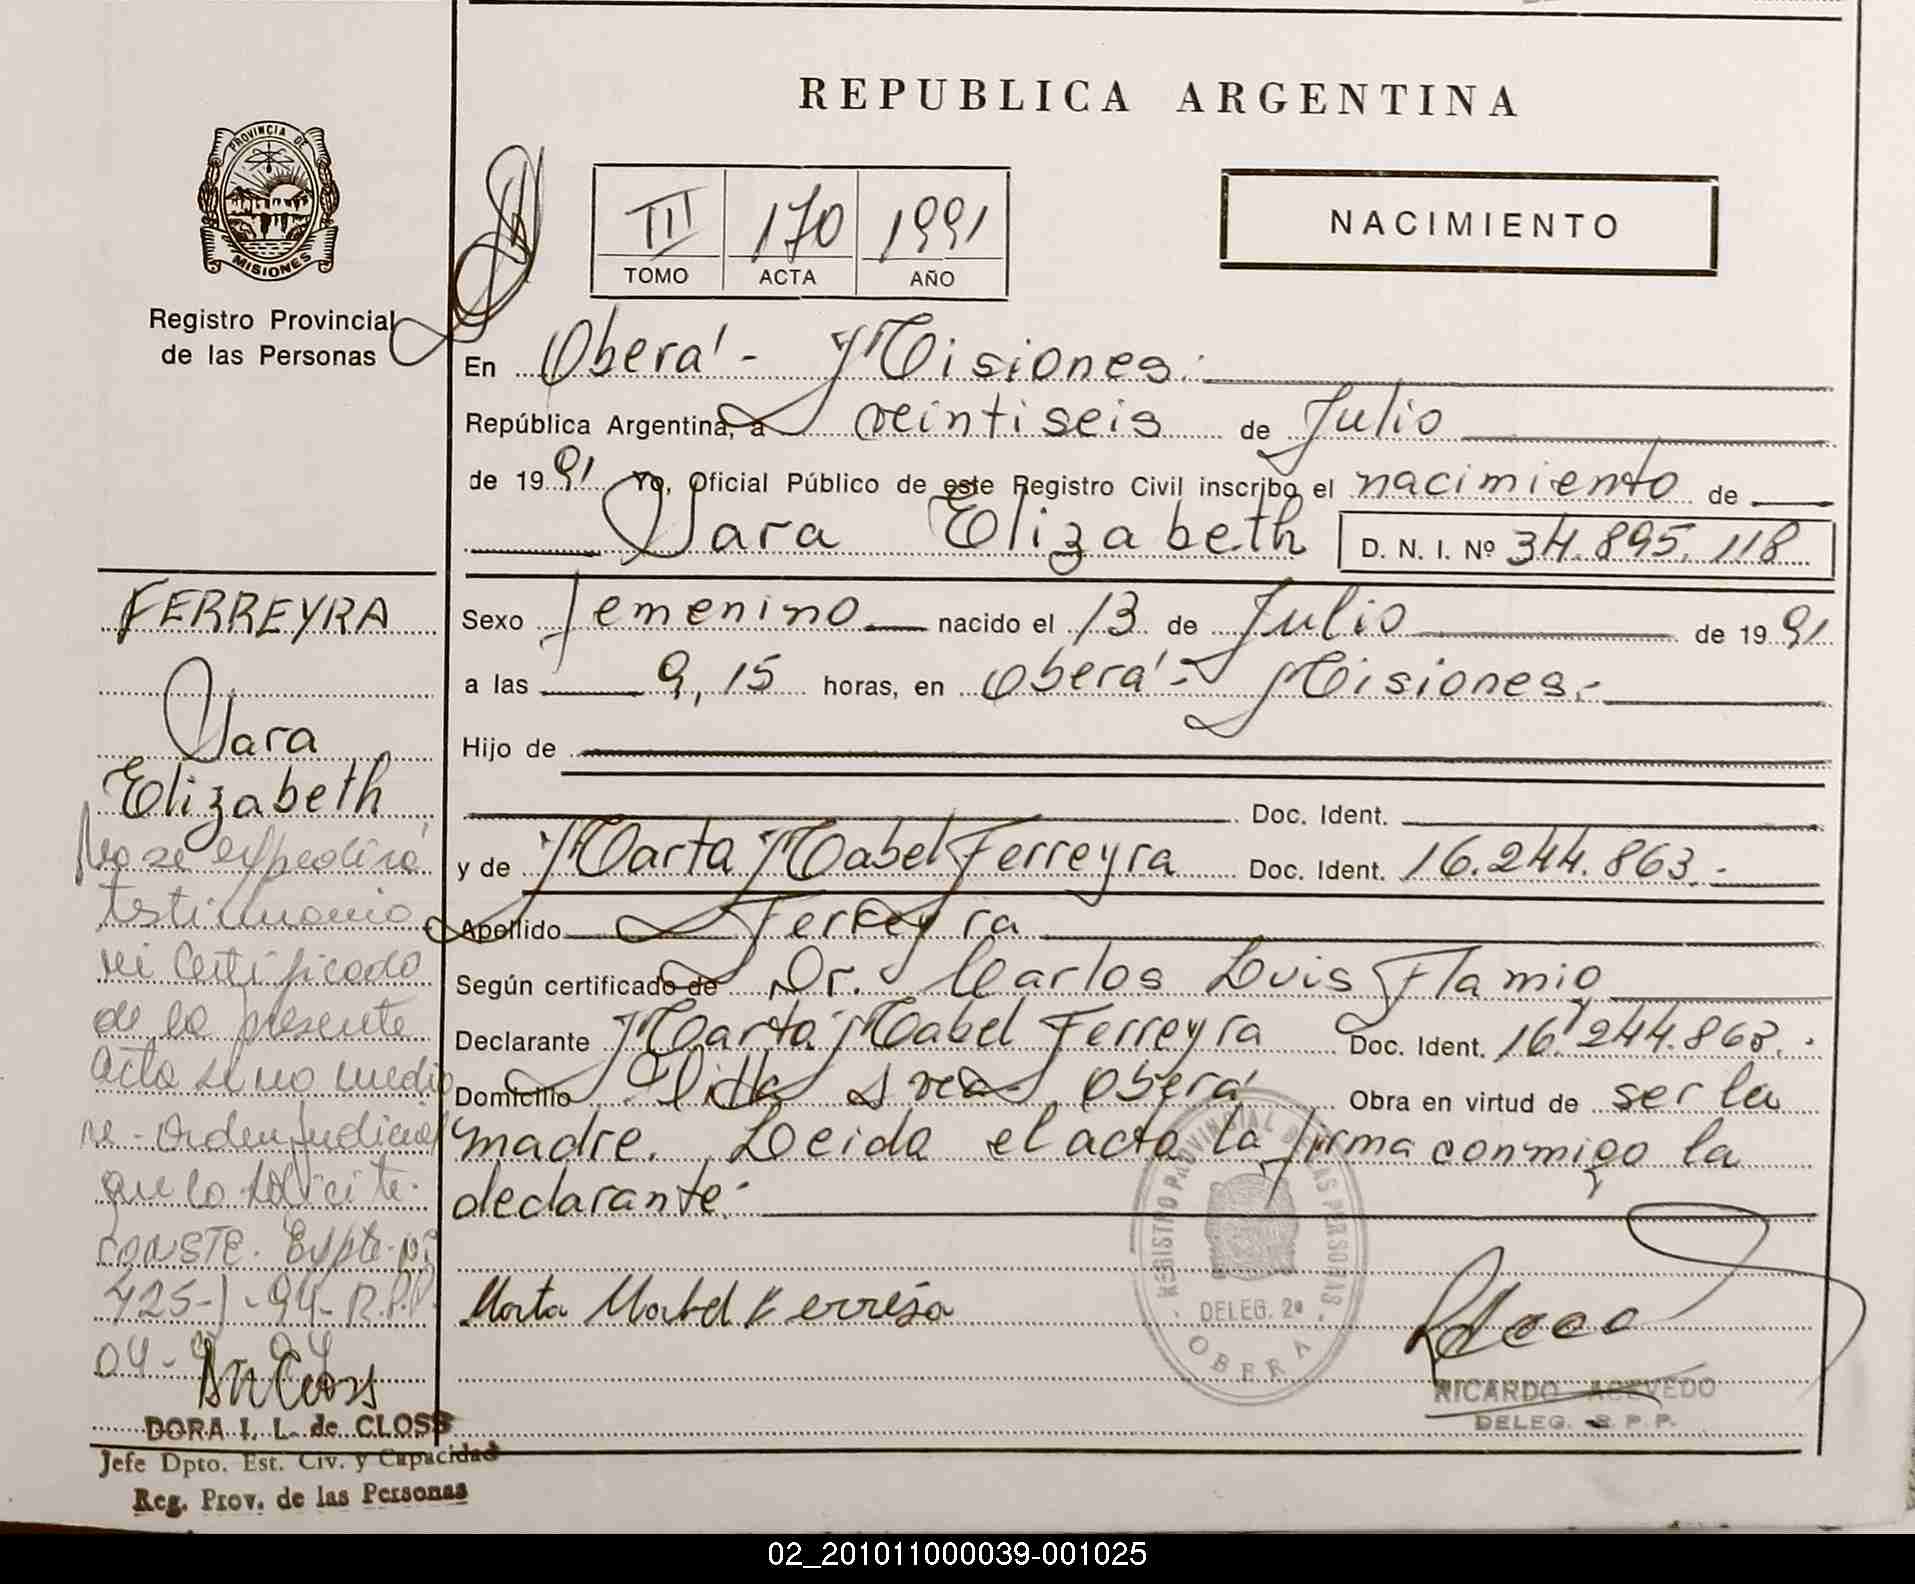 REPUBLICA ARGENTINA
PROVINCIA DE
MISIONES
Registro Provincial
de las Personas
III 170 1991
TOMO ACTA AÑO
NACIMIENTO
En Oberá - Misiones.
República Argentina, a veintiseis de Julio
de 1991 Yo, Oficial Público de este Registro Civil inscribo el nacimiento de
Yara Elizabeth D. N. I. Nº 34.895.118
Sexo femenino nacido el 13 de Julio de 1991
a las 9,15 horas, en Oberá - Misiones.-
Hijo de
Doc. Ident.
y de Marta Mabel Ferreyra Doc. Ident. 16.244.863.-
Apellido Ferreyra
Según certificado de Dr. Carlos Luis Flamio
Declarante Marta Mabel Ferreyra Doc. Ident. 16.244.863.-
Domicilio Oberá Obra en virtud de ser la
madre. Leida el acta la firma conmigo la
declarante.-
FERREYRA
Yara
Elizabeth
No se expedirá
testimonio
ni Certificado
de la presente
acta si no medi
re - Orden judicial
que lo solicite.
CONSTE. Expte. Nº
425-J-94-R.P.P.
04-
DORA I. L. de CLOSS
Jefe Dpto. Est. Civ. y Capacidad
Reg. Prov. de las Personas
Marta Mabel Ferreyra
REGISTRO PROVINCIAL DE LAS PERSONAS
DELEG. 2ª
OBERA
RICARDO ACEVEDO
DELEG. R. P. P.
02_201011000039-001025